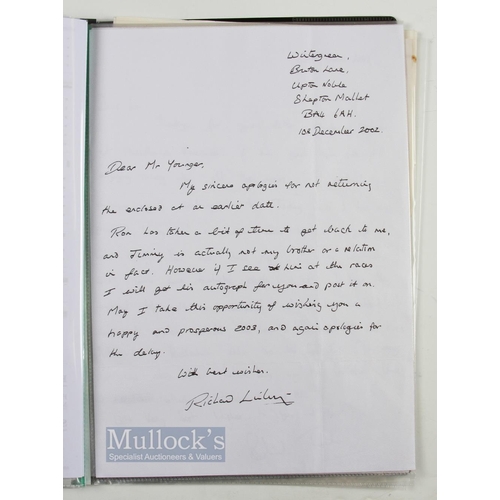 Wintergreen,
Bruton Lane,
Upton Noble
Shepton Mallet
BA4 6AH.
10th December 2002.
Dear Mr Younger,
My sincere apologies for not returning
the enclosed at an earlier date.
Ron has taken a bit of time to get back to me,
and Jimmy is actually not my brother or a relation
in fact. However if I see him at the races
I will get his autograph for you and post it on.
May I take this opportunity of wishing you a
happy and prosperous 2003, and again apologies for
the delay.
With best wishes.
Richard Linley
Mullock's
Specialist Auctioneers & Valuers